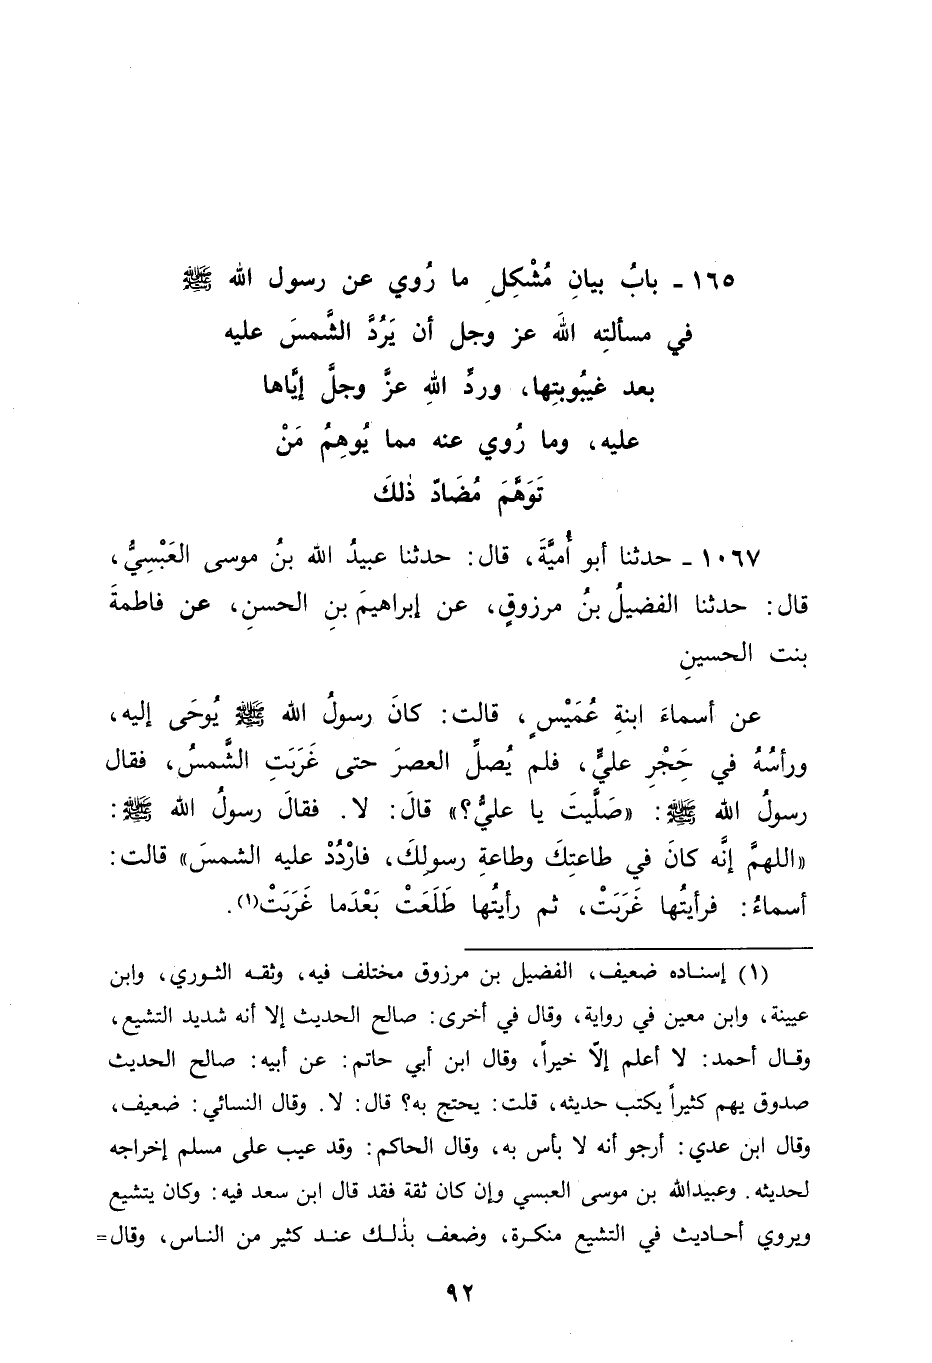 ١٦٥ - بابُ بيانِ مُشْكِلِ ما رُوي عن رسول الله ﷺ
في مسألتِه اللهَ عز وجل أن يَرُدَّ الشَّمسَ عليه
بعد غيبُوبتِها، وردِّ اللهِ عزَّ وجلَّ إيَّاها
عليه، وما رُوي عنه مما يُوهِمُ مَنْ
تَوَهَّمَ مُضَادّ ذٰلكَ
١٠٦٧ - حدثنا أبو أُميَّةَ، قال: حدثنا عبيدُ الله بنُ موسى العَبْسِيُّ،
قال: حدثنا الفضيلُ بنُ مرزوقٍ، عن إبراهيمَ بنِ الحسنِ، عن فاطمةَ
بنت الحسينِ
عن أسماءَ ابنةِ عُمَيْسٍ، قالت: كانَ رسولُ الله ﷺ يُوحَى إليه،
ورأسُهُ في حَجْرِ عليٍّ، فلم يُصلِّ العصرَ حتى غَرَبَتِ الشَّمسُ، فقال
رسولُ الله ﷺ: «صَلَّيتَ يا عليُّ؟» قالَ: لا. فقالَ رسولُ الله ﷺ:
«اللهمَّ إنَّه كانَ في طاعتِكَ وطاعةِ رسولِكَ، فارْدُدْ عليه الشمسَ» قالت:
أسماءُ: فرأيتُها غَرَبَتْ، ثم رأيتُها طَلَعَتْ بَعْدَما غَرَبَتْ(١).
(١) إسناده ضعيف، الفضيل بن مرزوق مختلف فيه، وثقه الثوري، وابن
عيينة، وابن معين في رواية، وقال في أخرى: صالح الحديث إلا أنه شديد التشيع،
وقال أحمد: لا أعلم إلّا خيراً، وقال ابن أبي حاتم: عن أبيه: صالح الحديث
صدوق يهم كثيراً يكتب حديثه، قلت: يحتج به؟ قال: لا. وقال النسائي: ضعيف،
وقال ابن عدي: أرجو أنه لا بأس به، وقال الحاكم: وقد عيب على مسلم إخراجه
لحديثه. وعبيدالله بن موسى العبسي وإن كان ثقة فقد قال ابن سعد فيه: وكان يتشيع
ويروي أحاديث في التشيع منكرة، وضعف بذٰلك عند كثير من الناس، وقال=
٩٢